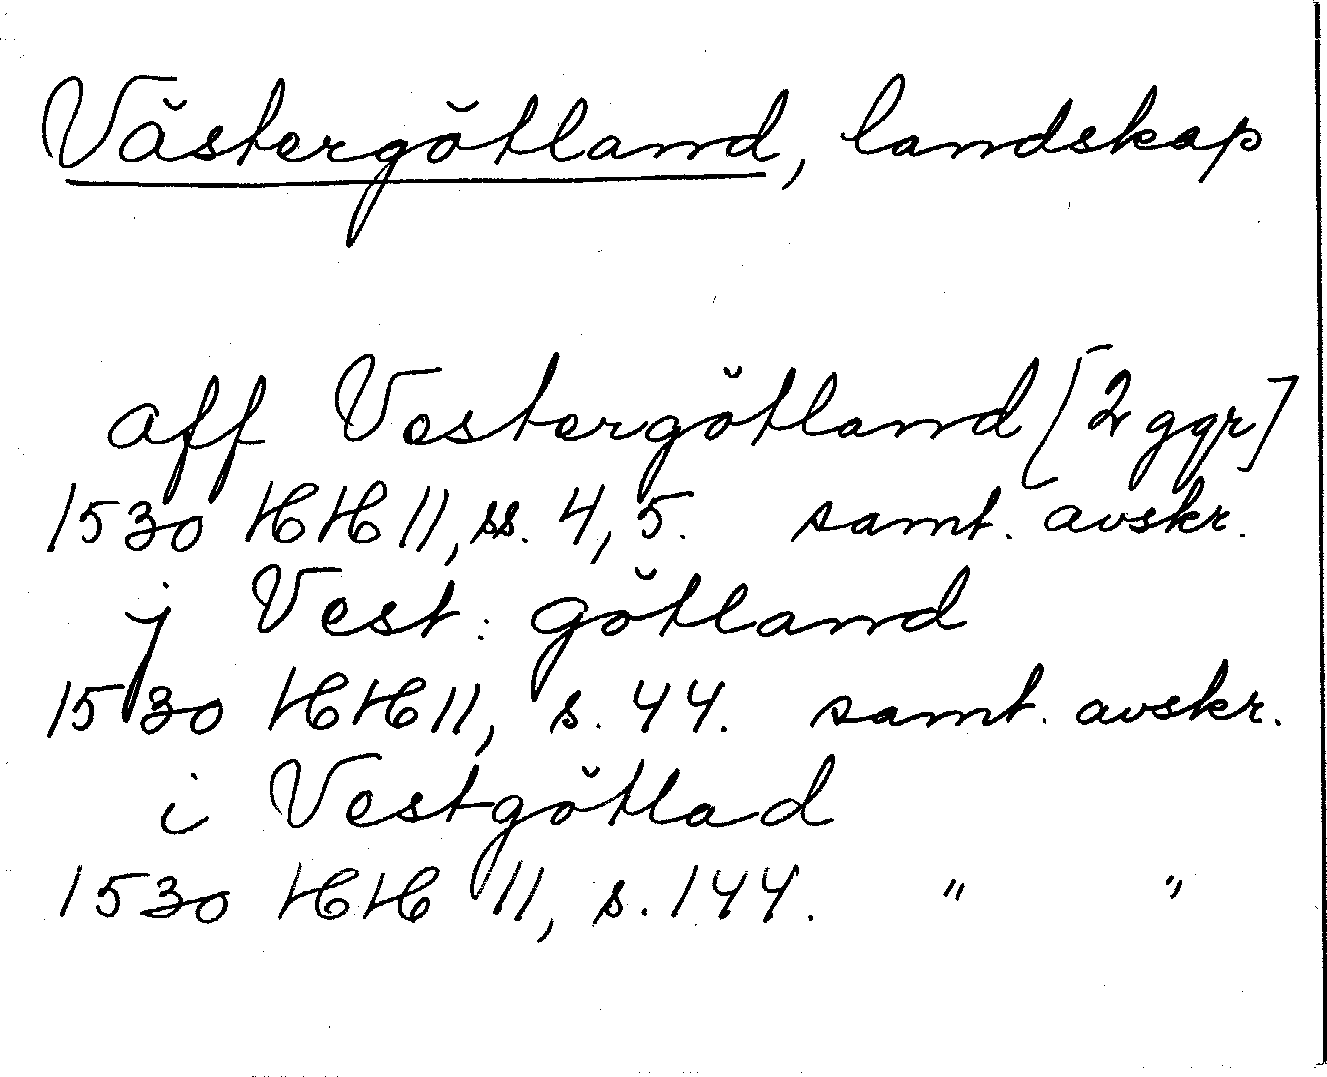 Västergötland, landskap
aff Vestergötland [2 ggr]
1530 HH 11, ss. 4, 5. samt. avskr.
j Vest: götland
1530 HH 11, s. 44. samt. avskr.
i Vestgötlad
1530 HH 11, s. 144. " "